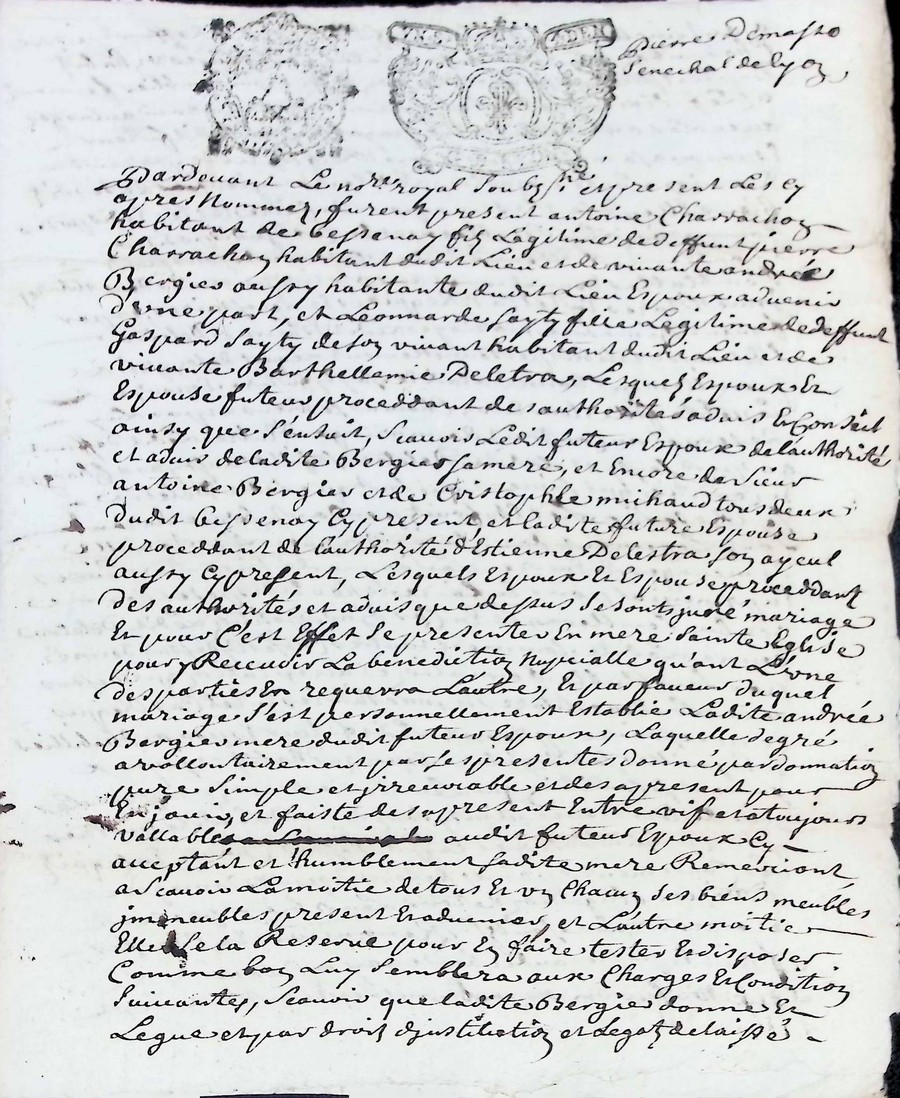 Pierre Demasso
Senechal de lyon
Pardeuant Le no.re royal Soubz.né et present Les Cy
apres Nommez, furent present antoine Charrachon
habitant de bessenay filz Legitime de deffunt pierre
Charrachon habitant dudit Lieu et de viuante andrée
Bergier aussy habitante dudit Lieu Espoux aduenir
D'vne part, et Leonnarde Sayty fille Legitime de deffunt
Gaspard Sayty de son viuant habitant dudit Lieu et de
viuante Barthellemie Deletra, Lesquelz Espoux Et
Espouse futeur proceddant de s authorités aduis Et Conseil
ainsy que s'ensuit, Scauoir Ledit futeur Espoux de l'authorité
et aduis de ladite Bergier sa mere, et Encore de Sieur
antoine Bergier et de Cristophle michaud tous deux
Dudit bessenay Cy present, et ladite future Espouse
proceddant de l'authorité d'Estienne Delestra son ayeul
aussy Cy present, Lesquels Espoux Et Espouse proceddant
Des authorités et aduis que dessus se sont juré mariage
Et pour C'est Effet se presenter En mere Sainte Eglise
pour y Receuoir La benediction Nupcialle qu'ant L'vne
Des parties En requerra L'autre, Et par faueur duquel
mariage s'est personnellement Establie Ladite andrée
Bergier mere dudit futeur Espoux, Laquelle de gré
a vollontairement par Les presentes donné par donnation
pure Simple et jrreuocable et des apresent pour
En jouir, et faiste des apresent Entre vif et a toujours
vallable audit futeur Espoux Cy
acceptant et humblement sadite mere Remerciant
a Scauoir La moitie de tous Et vn Chacun ses biens meubles
jmmeubles present Et aduenier, et L'autre moitie
Elle se la Reserue pour En faire tester Et disposer
Comme bon Luy Semblera aux Charges Et Condition
Suiuantes, Scauoir que ladite Bergier donne Et
Legue et par droit djnstitution et Legat delaissé